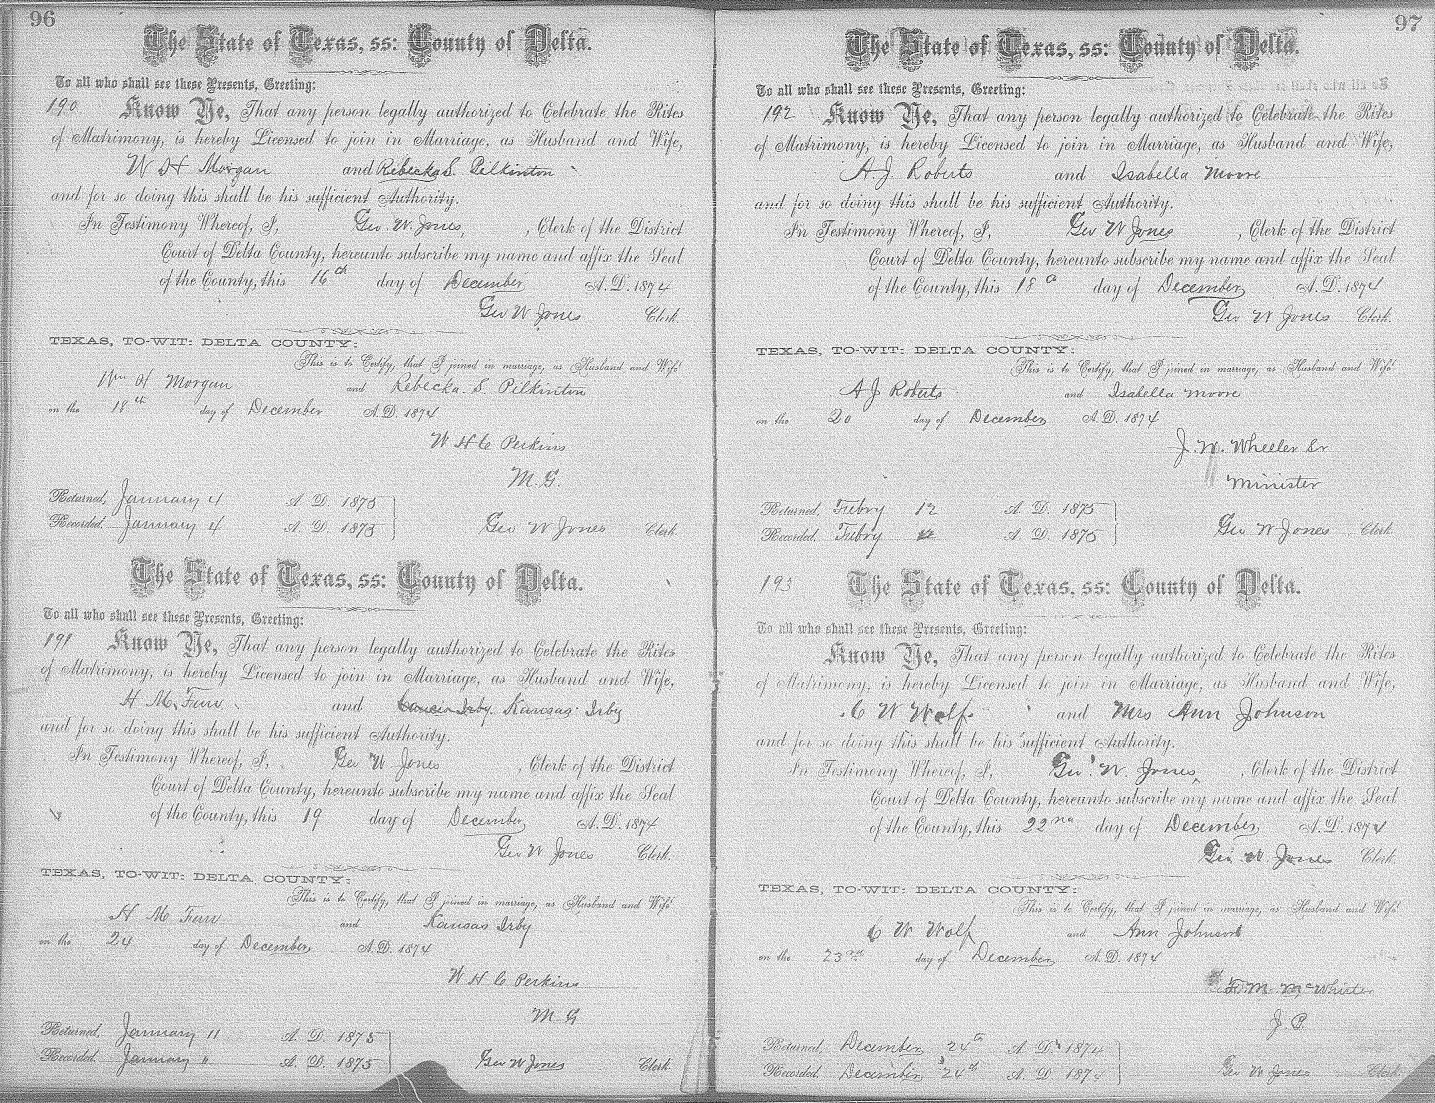 96
The State of Texas, ss: County of Delta.
To all who shall see these Presents, Greeting:
190 Know Ye, That any person legally authorized to Celebrate the Rites
of Matrimony, is hereby Licensed to join in Marriage, as Husband and Wife,
W H Morgan and Rebecka S. Pilkinton
and for so doing this shall be his sufficient Authority.
In Testimony Whereof, I, Geo. W. Jones, , Clerk of the District
Court of Delta County, hereunto subscribe my name and affix the Seal
of the County, this 16th day of December A. D. 1874
Geo W Jones Clerk.
TEXAS, TO-WIT: DELTA COUNTY:
This is to Certify, that I joined in marriage, as Husband and Wife
Wm H Morgan and Rebecka. S. Pilkinton
on the 18th day of December A. D. 1874
W H C Perkins
M. G.
Returned, January 4 A. D. 1875
Recorded. January 4 A. D. 1875
Geo W Jones Clerk.
The State of Texas, ss: County of Delta.
To all who shall see these Presents, Greeting:
191 Know Ye, That any person legally authorized to Celebrate the Rites
of Matrimony, is hereby Licensed to join in Marriage, as Husband and Wife,
H M. and Irby. Kansas Irby
and for so doing this shall be his sufficient Authority.
In Testimony Whereof, I, Geo W Jones , Clerk of the District
Court of Delta County, hereunto subscribe my name and affix the Seal
of the County, this 19 day of December A. D. 1874
Geo W Jones Clerk.
TEXAS, TO-WIT: DELTA COUNTY:
This is to Certify, that I joined in marriage, as Husband and Wife
H M and Kansas Irby
on the 24 day of December A. D. 1874
W H C Perkins
M G
Returned, January 11 A. D. 1875
Recorded. January " A. D. 1875
Geo W Jones Clerk.
97
The State of Texas, ss: County of Delta.
To all who shall see these Presents, Greeting:
192 Know Ye, That any person legally authorized to Celebrate the Rites
of Matrimony, is hereby Licensed to join in Marriage, as Husband and Wife,
A. J Roberts and Isabella Moore
and for so doing this shall be his sufficient Authority.
In Testimony Whereof, I, Geo W Jones , Clerk of the District
Court of Delta County, hereunto subscribe my name and affix the Seal
of the County, this 18 day of December A. D. 1874
Geo W Jones Clerk.
TEXAS, TO-WIT: DELTA COUNTY:
This is to Certify, that I joined in marriage, as Husband and Wife
A J Roberts and Isabella Moore
on the 20 day of December A. D. 1874
J. W. Wheeler Sr
Minister
Returned, Febry 12 A. D. 1875
Recorded. Febry 12 A. D. 1875
Geo W Jones Clerk.
193 The State of Texas, ss: County of Delta.
To all who shall see these Presents, Greeting:
Know Ye, That any person legally authorized to Celebrate the Rites
of Matrimony, is hereby Licensed to join in Marriage, as Husband and Wife,
C W Wolf and Mrs Ann Johnson
and for so doing this shall be his sufficient Authority.
In Testimony Whereof, I, Geo. W. Jones, , Clerk of the District
Court of Delta County, hereunto subscribe my name and affix the Seal
of the County, this 22nd day of December A. D. 1874
Geo W Jones Clerk.
TEXAS, TO-WIT: DELTA COUNTY:
This is to Certify, that I joined in marriage, as Husband and Wife
C W Wolf and Ann Johnson
on the 23rd day of December A. D. 1874
F. M. McWhister
J P.
Returned, December 24th A. D. 1874
Recorded. December 24th A. D. 1874
Geo W Jones Clerk